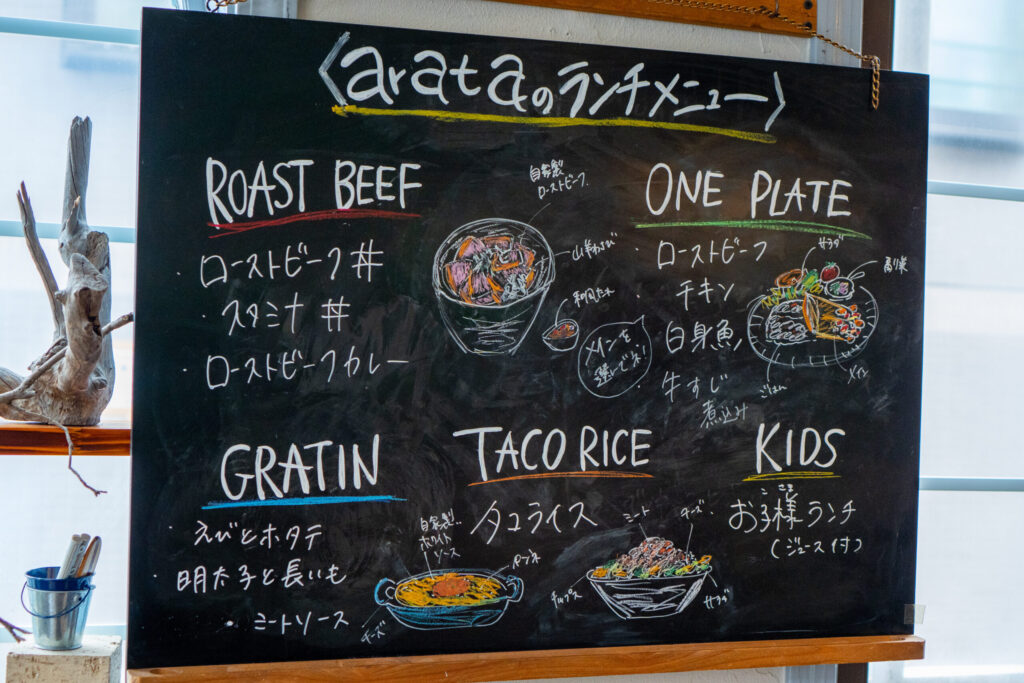 〈arataのランチメニュー〉
ROAST BEEF
・ローストビーフ丼
・スタミナ丼
・ローストビーフカレー
自家製
ローストビーフ
山わさび
ONE PLATE
・ローストビーフ
・チキン
・白身魚
・牛すじ
煮込み
メインを
選んでネ!
サラダ
ごはん
メイン
GRATIN
・えびとホタテ
・明太子と長いも
・ミートソース
自家製
ホワイト
ソース
ペンネ
チーズ
TACO RICE
タコライス
ミート
チーズ
チップス
サラダ
KIDS
お子様ランチ
こさま
(ジュース付)